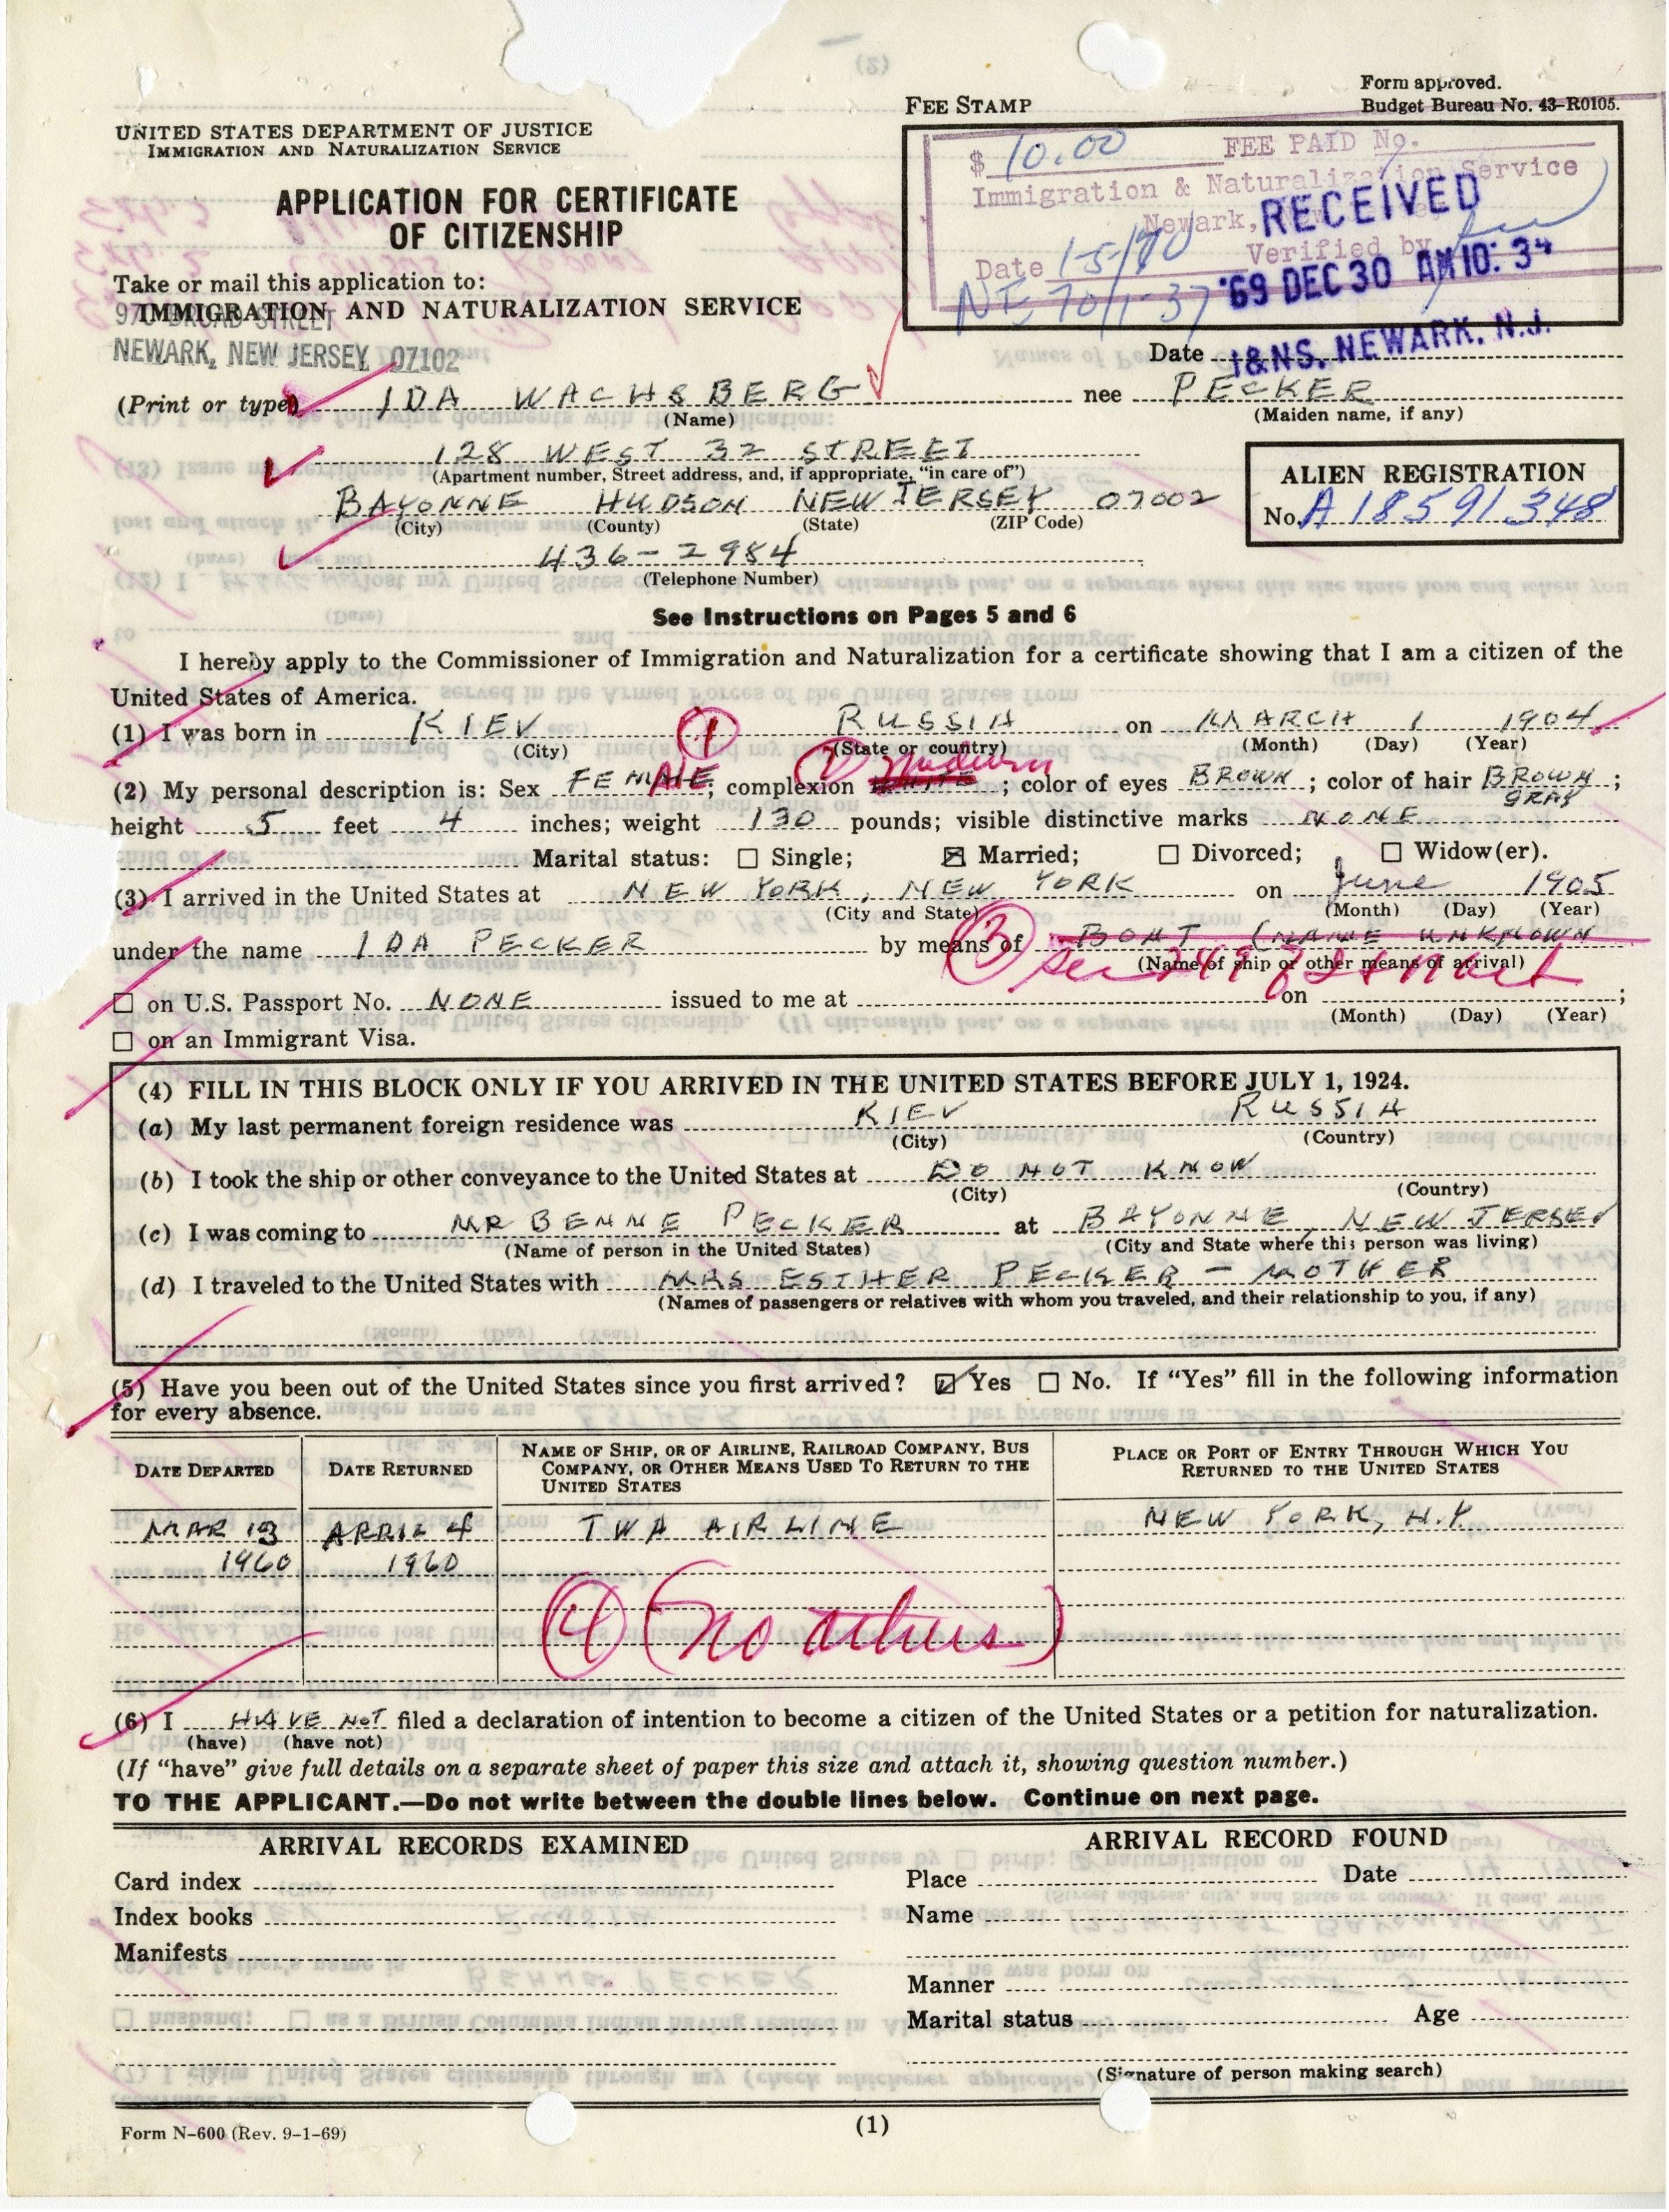 (2)
Form approved.
Budget Bureau No. 43-R0105.
FEE STAMP
UNITED STATES DEPARTMENT OF JUSTICE
IMMIGRATION AND NATURALIZATION SERVICE
APPLICATION FOR CERTIFICATE
OF CITIZENSHIP
$ 10.00 FEE PAID No.
Immigration & Naturalization Service
Newark,
Verified by
Date 1-5/70
NE 70/1-37
RECEIVED
'69 DEC 30 AM 10: 34
I&NS. NEWARK, N.J.
Take or mail this application to:
IMMIGRATION AND NATURALIZATION SERVICE
970 BROAD STREET
NEWARK, NEW JERSEY 07102
Date
(Print or type) IDA WACHSBERG nee PECKER
(Name) (Maiden name, if any)
128 WEST 32 STREET
(Apartment number, Street address, and, if appropriate, "in care of")
BAYONNE HUDSON NEW JERSEY 07002
(City) (County) (State) (ZIP Code)
436-2984
(Telephone Number)
ALIEN REGISTRATION
No. A 18 591 348
See Instructions on Pages 5 and 6
I hereby apply to the Commissioner of Immigration and Naturalization for a certificate showing that I am a citizen of the
United States of America.
(1) I was born in KIEV 1 RUSSIA on MARCH 1 1904
(City) (State or country) (Month) (Day) (Year)
(2) My personal description is: Sex FEMALE; complexion 2 Medium; color of eyes BROWN; color of hair BROWN GRAY;
height 5 feet 4 inches; weight 130 pounds; visible distinctive marks NONE
Marital status: ☐ Single; ☒ Married; ☐ Divorced; ☐ Widow(er).
(3) I arrived in the United States at NEW YORK, NEW YORK on June 1905
(City and State) (Month) (Day) (Year)
under the name IDA PECKER by means of 3 BOAT (NAME UNKNOWN
(Name of ship or other means of arrival)
☐ on U.S. Passport No. NONE issued to me at on ;
(Month) (Day) (Year)
☐ on an Immigrant Visa.
(4) FILL IN THIS BLOCK ONLY IF YOU ARRIVED IN THE UNITED STATES BEFORE JULY 1, 1924.
(a) My last permanent foreign residence was KIEV RUSSIA
(City) (Country)
(b) I took the ship or other conveyance to the United States at DO NOT KNOW
(City) (Country)
(c) I was coming to MR BENNE PECKER at BAYONNE, NEW JERSEY
(Name of person in the United States) (City and State where this person was living)
(d) I traveled to the United States with MRS ESTHER PECKER - MOTHER
(Names of passengers or relatives with whom you traveled, and their relationship to you, if any)
(5) Have you been out of the United States since you first arrived? ☑ Yes ☐ No. If "Yes" fill in the following information
for every absence.
DATE DEPARTED DATE RETURNED NAME OF SHIP, OR OF AIRLINE, RAILROAD COMPANY, BUS COMPANY, OR OTHER MEANS USED TO RETURN TO THE UNITED STATES PLACE OR PORT OF ENTRY THROUGH WHICH YOU RETURNED TO THE UNITED STATES
MAR 13 APRIL 4 TWA AIRLINE NEW YORK, N.Y.
1960 1960
4 (no others)
(6) I HAVE NOT filed a declaration of intention to become a citizen of the United States or a petition for naturalization.
(have) (have not)
(If "have" give full details on a separate sheet of paper this size and attach it, showing question number.)
TO THE APPLICANT.—Do not write between the double lines below. Continue on next page.
ARRIVAL RECORDS EXAMINED ARRIVAL RECORD FOUND
Card index Place Date
Index books Name
Manifests
Manner
Marital status Age
(Signature of person making search)
Form N-600 (Rev. 9-1-69) (1)